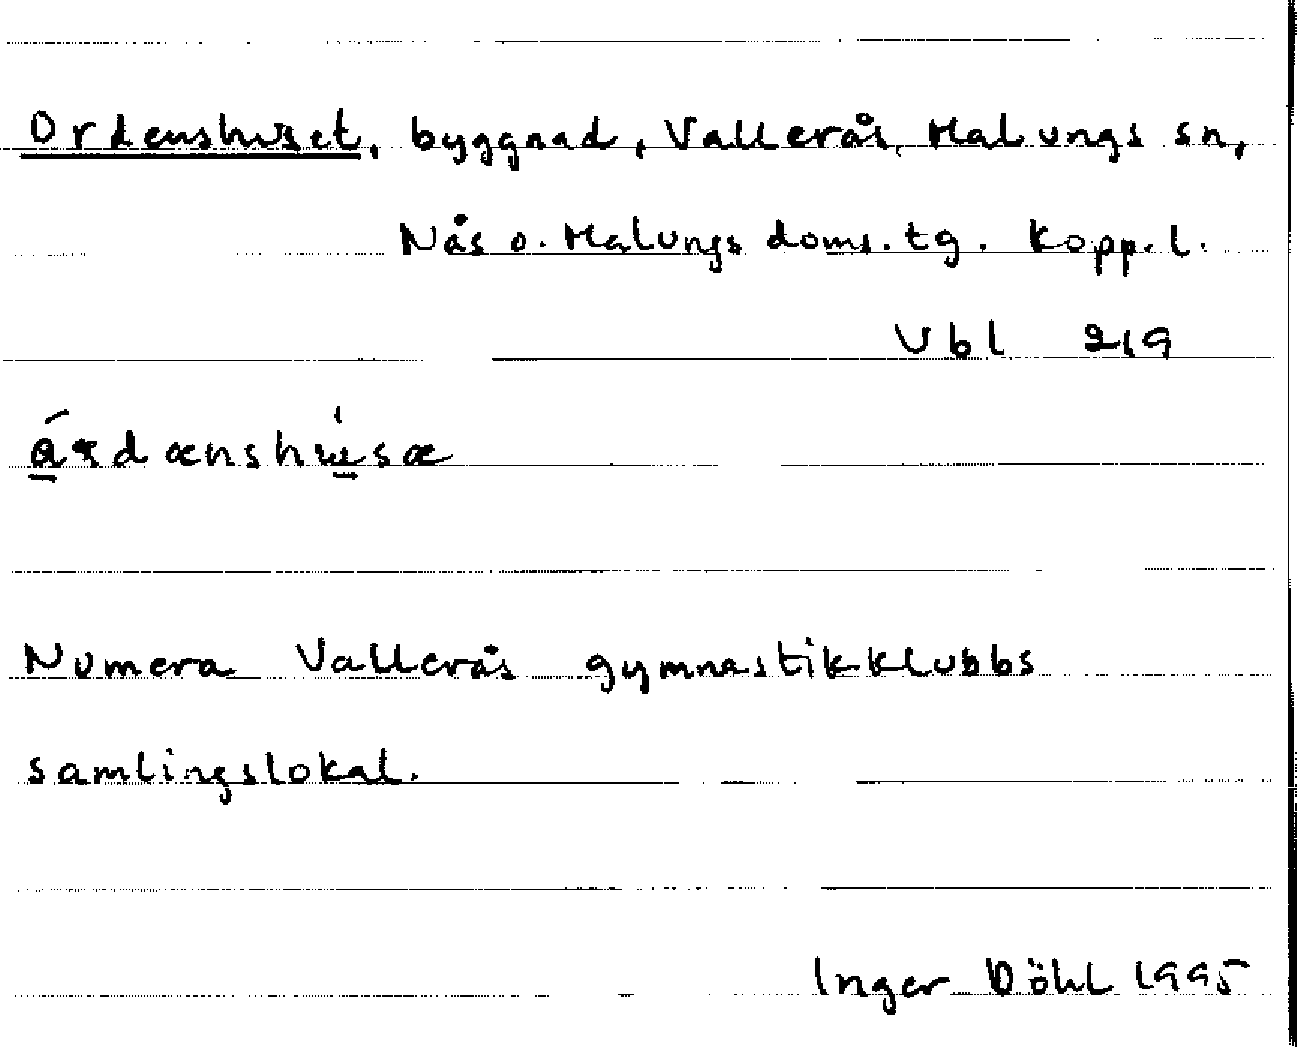 Ordenshuset, byggnad, Vallerås, Malungs sn,
Nås o. Malungs doms.tg. Kopp.l.
Vbl 219
Numera Vallerås gymnastikklubbs
samlingslokal.
Inger Döhl 1995